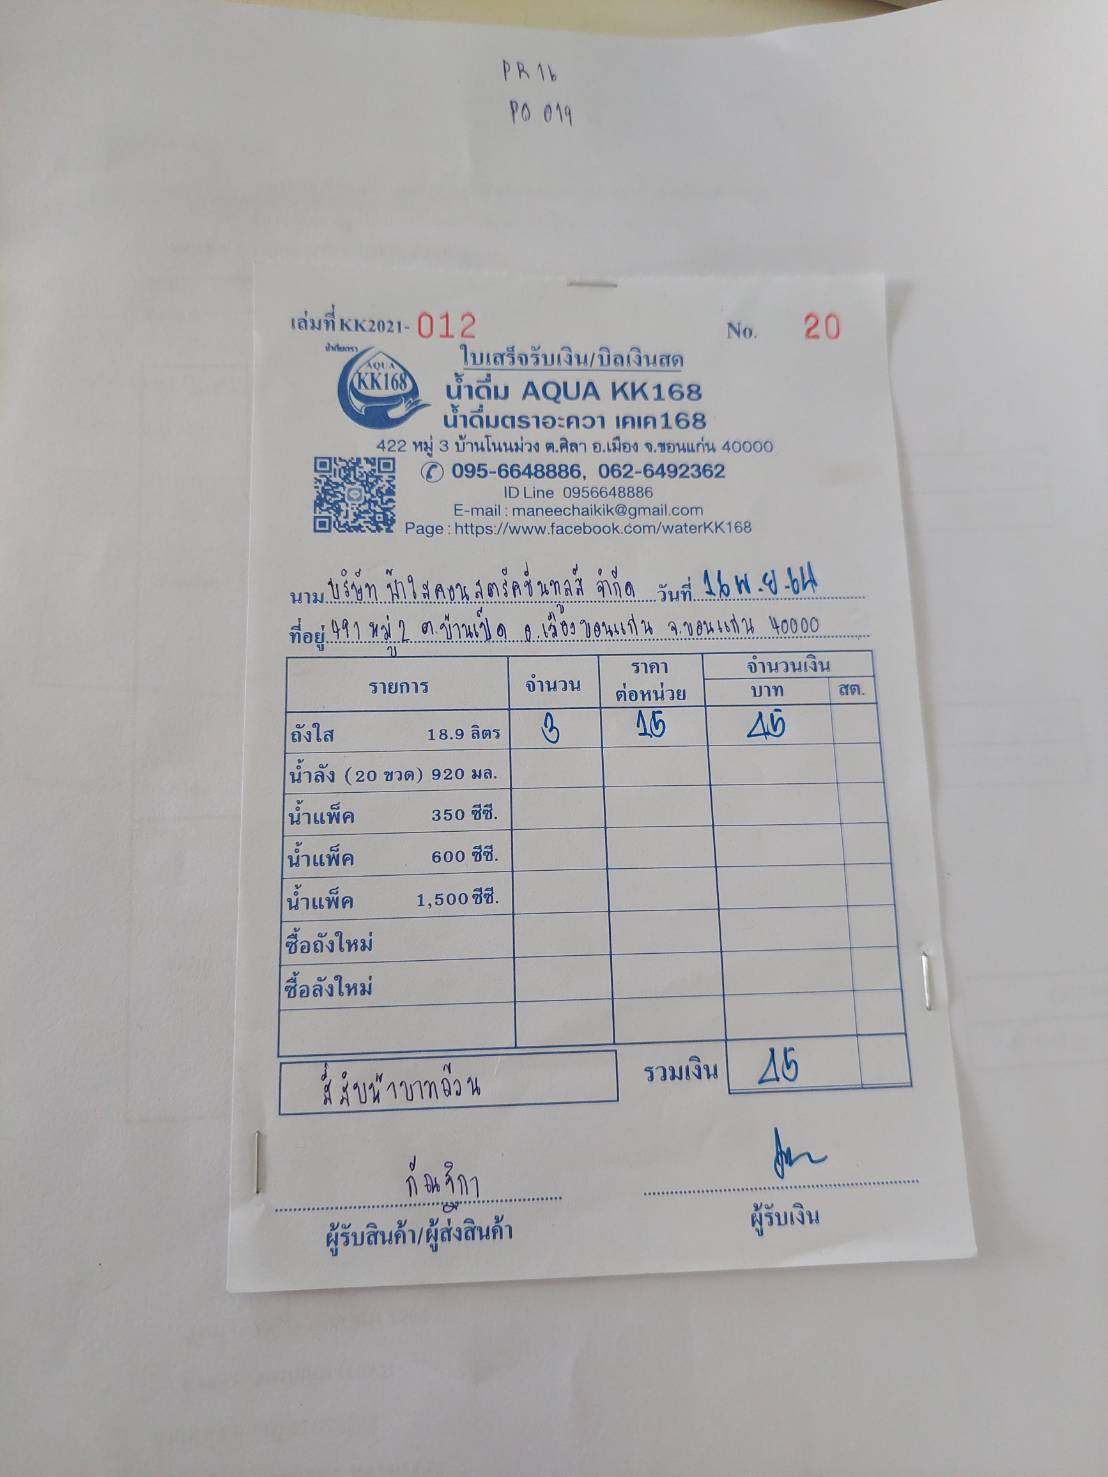 PR 16
PO 019
เล่มที่ KK2021- 012 No. 20
น้ำดื่มตรา
AQUA
KK168
ใบเสร็จรับเงิน/บิลเงินสด
น้ำดื่ม AQUA KK168
น้ำดื่มตราอะควา เคเค168
422 หมู่ 3 บ้านโนนม่วง ต.ศิลา อ.เมือง จ.ขอนแก่น 40000
095-6648886, 062-6492362
ID Line 0956648886
E-mail : maneechaikik@gmail.com
Page : https://www.facebook.com/waterKK168
นาม บริษัท ฟ้าใสคอนสตรัคชั่นทูลส์ จำกัด วันที่ 16 พ.ย.64
ที่อยู่ 491 หมู่ 2 ต.บ้านเป็ด อ.เมืองขอนแก่น จ.ขอนแก่น 40000
รายการ จำนวน ราคาต่อหน่วย จำนวนเงิน
บาท สต.
ถังใส 18.9 ลิตร 3 15 45
น้ำลัง (20 ขวด) 920 มล.
น้ำแพ็ค 350 ซีซี.
น้ำแพ็ค 600 ซีซี.
น้ำแพ็ค 1,500 ซีซี.
ซื้อถังใหม่
ซื้อลังใหม่
สี่สิบห้าบาทถ้วน รวมเงิน 45
กัณฐิกา
ผู้รับสินค้า/ผู้ส่งสินค้า ผู้รับเงิน